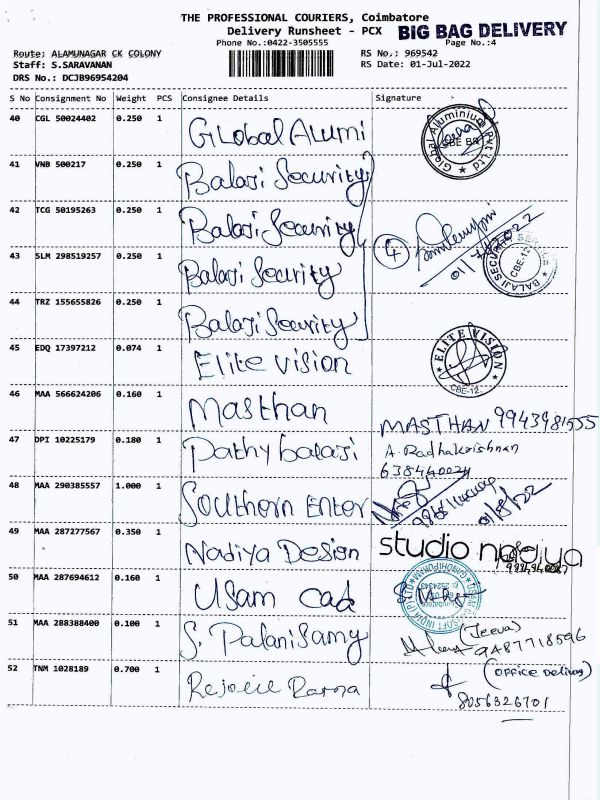 THE PROFESSIONAL COURIERS, Coimbatore
Delivery Runsheet - PCX BIG BAG DELIVERY
Phone No.:0422-3505555 Page No.:4
Route: ALAMUNAGAR CK COLONY RS No.: 969542
Staff: S.SARAVANAN RS Date: 01-Jul-2022
DRS No.: DCJB96954204
S No Consignment No Weight PCS Consignee Details Signature
40 CGL 50024402 0.250 1 GLobal ALumi Global Aluminium Pvt Ltd
41 VNB 500217 0.250 1 Balaji Security
42 TCG 50195263 0.250 1 Balaji Security 4
43 SLM 298519257 0.250 1 Balaji Security BALAJI SECURITY CBE-12
44 TRZ 155655826 0.250 1 Balaji Security
45 EDQ 17397212 0.074 1 Elite vision ELITE VISION CBE-12
46 MAA 566624206 0.160 1 Masthan MASTHAN 9943981555
47 DPI 10225179 0.180 1 Pathy balaji A. Radhakrishnan
48 MAA 290385557 1.000 1 Southern Enter
49 MAA 287277567 0.350 1 Nadiya Design studio nadiya
50 MAA 287694612 0.160 1 Usam cad
51 MAA 288388400 0.100 1 S. Palanisamy (Jeeva) 9487718596
52 TNM 1028189 0.700 1 (OFFICE Delivery)
8056326701